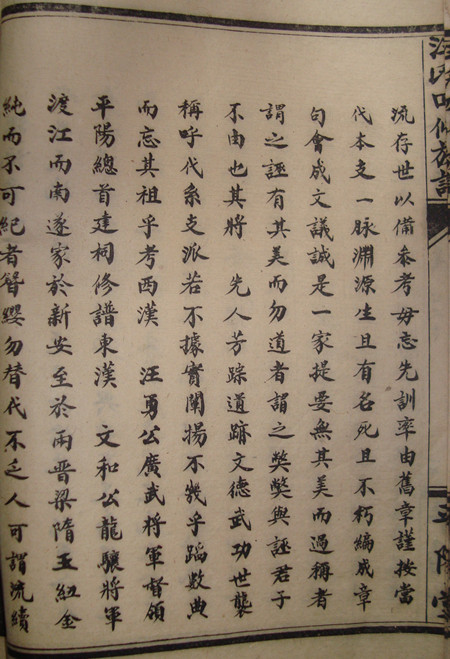 平陽堂
流存世以備參考毋忘先訓率由舊章謹按當
代本支一脉淵源生且有名死且不朽編成章
句會成文議誠是一家提要無其美而過稱者
謂之誣有其美而勿道者謂之獘獘與誣君子
不由也其將　先人芳踪道蹟文德武功世襲
稱呼代系支派若不據實闡揚不幾乎蹈數典
而忘其祖乎考西漢　汪勇公廣武將軍督領
平陽總首建祠修譜東漢　文和公龍驤將軍
渡江而南遂家於新安至於兩晉梁隋玉紐金
純而不可紀者簪纓勿替代不乏人可謂流續